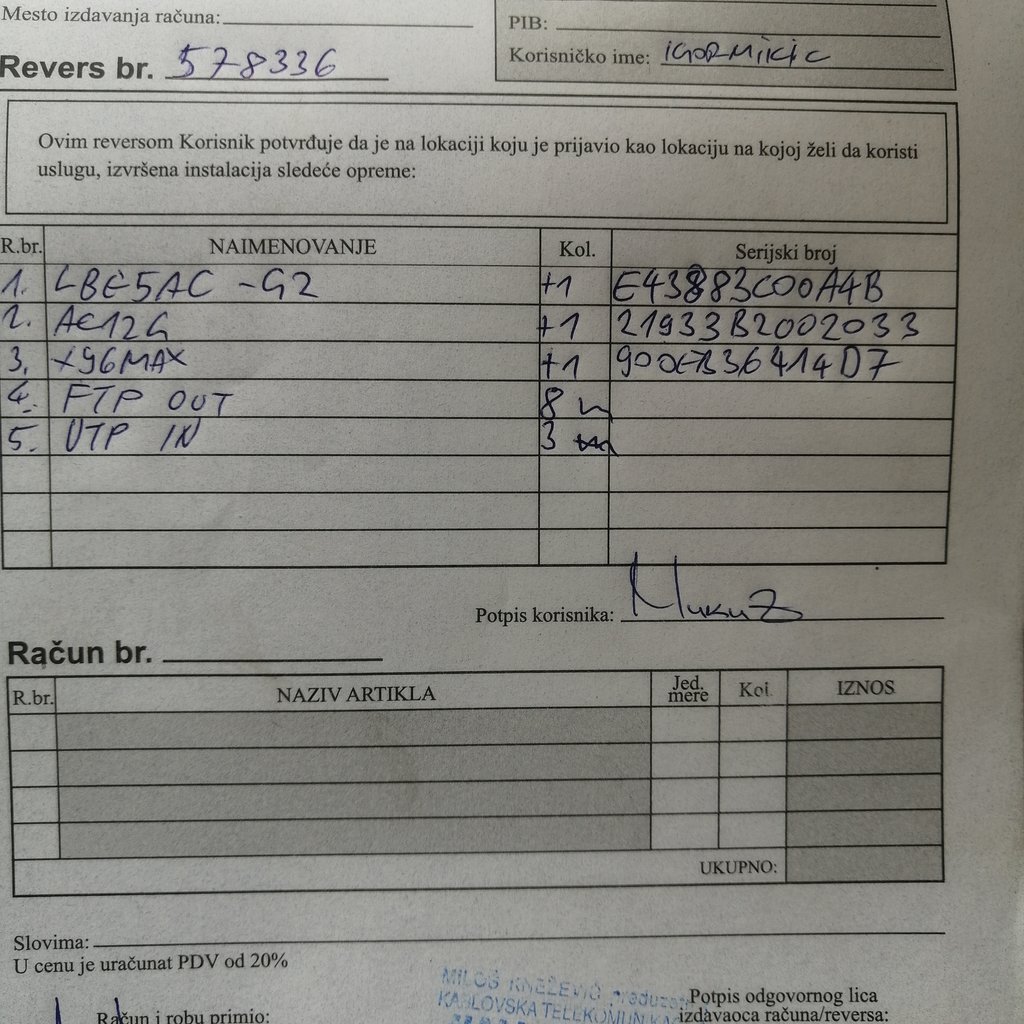 Mesto izdavanja računa:
PIB:
Korisničko ime: IGORMIKIC
Revers br. 578336
Ovim reversom Korisnik potvrđuje da je na lokaciji koju je prijavio kao lokaciju na kojoj želi da koristi
uslugu, izvršena instalacija sledeće opreme:
R.br. NAIMENOVANJE Kol. Serijski broj
1. LBE5AC -G2 +1 E43883C00A4B
2. AC12G +1 21933B2002033
3. X96MAX +1
4. FTP OUT 8 m
5. UTP IN 3 m
Potpis korisnika:
Račun br.
R.br. NAZIV ARTIKLA Jed. mere Kol. IZNOS
UKUPNO:
Slovima:
U cenu je uračunat PDV od 20%
MILOŠ KNEŽEVIĆ preduzet
KARLOVSKA TELEKOMUNIKA
Potpis odgovornog lica
izdavaoca računa/reversa:
Račun i robu primio: